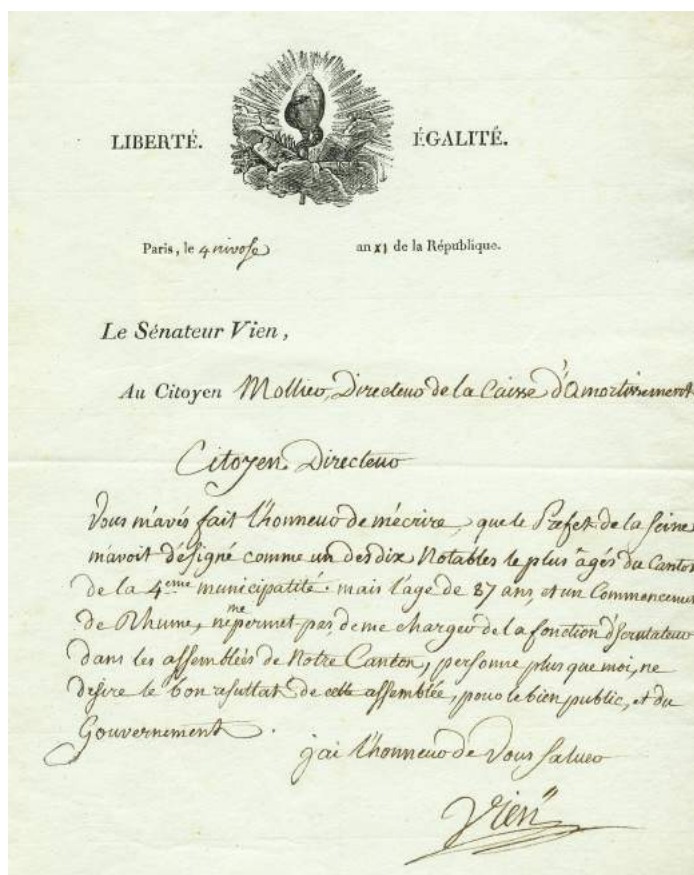 LIBERTÉ. ÉGALITÉ.
Paris, le 4 nivose an XI de la République.
Le Sénateur Vien,
Au Citoyen Mollien, Directeur de la Caisse d'Amortissement
Citoyen Directeur
Vous m'avés fait l'honneur de m'écrire, que le Préfet de la Seine
m'avoit désigné comme un des dix Notables le plus âgés du Canton
de la 4eme municipalité. mais l'age de 87 ans, et un Commencement
de Rhume, ne me permet pas, de me charger de la fonction d'Scrutateur
dans les assemblées de Notre Canton, personne plus que moi, ne
desire le bon resultat de cette assemblée, pour le bien public, et du
Gouvernement.
j'ai l'honneur de Vous saluer
Vien